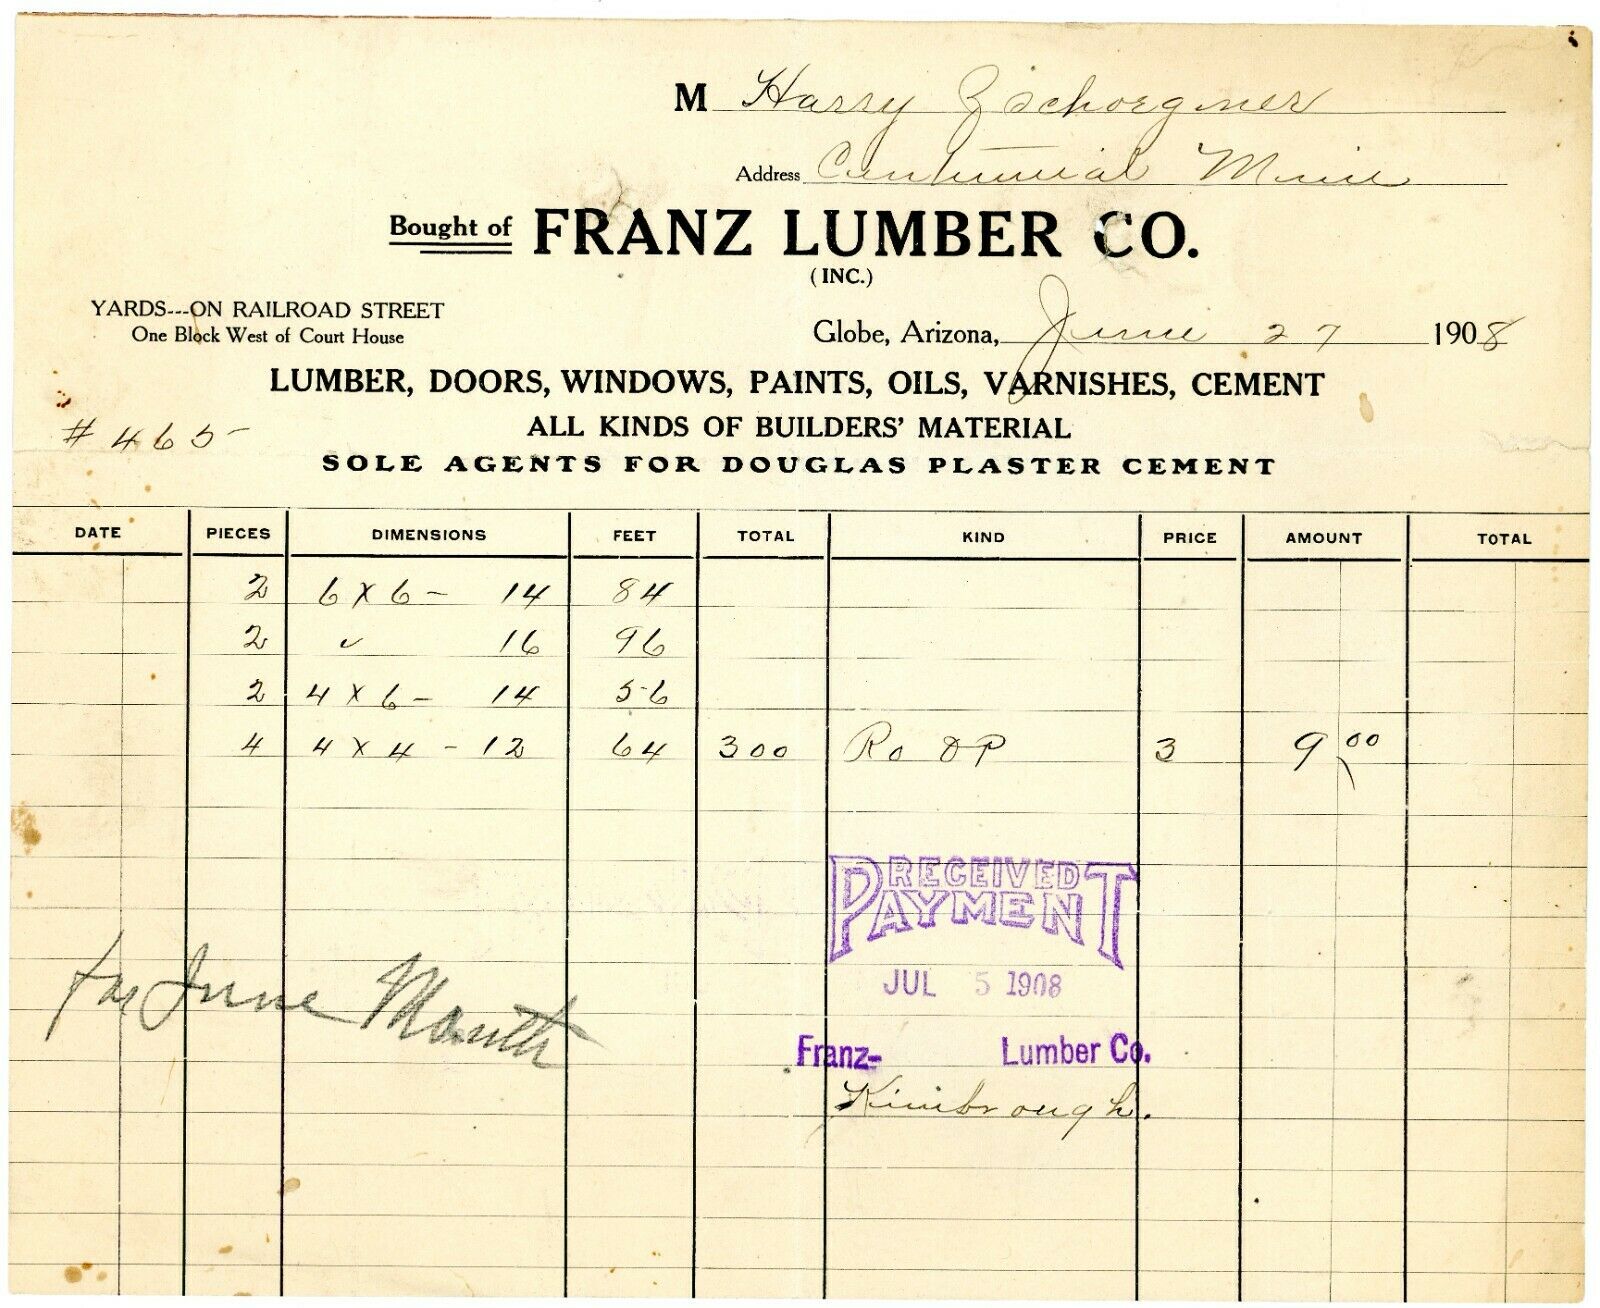 M Harry Zschoegner
Address Centennial Mine
Bought of FRANZ LUMBER CO.
(INC.)
YARDS---ON RAILROAD STREET
One Block West of Court House
Globe, Arizona, June 27 1908
LUMBER, DOORS, WINDOWS, PAINTS, OILS, VARNISHES, CEMENT
# 465
ALL KINDS OF BUILDERS' MATERIAL
SOLE AGENTS FOR DOUGLAS PLASTER CEMENT
DATE PIECES DIMENSIONS FEET TOTAL KIND PRICE AMOUNT TOTAL
2 6 x 6 - 14 84
2 " 16 96
2 4 x 6 - 14 56
4 4 x 4 - 12 64 300 Ro OP 3 9 00
RECEIVED
PAYMENT
JUL 5 1908
for June Month
Franz- Lumber Co.
Kimbrough.